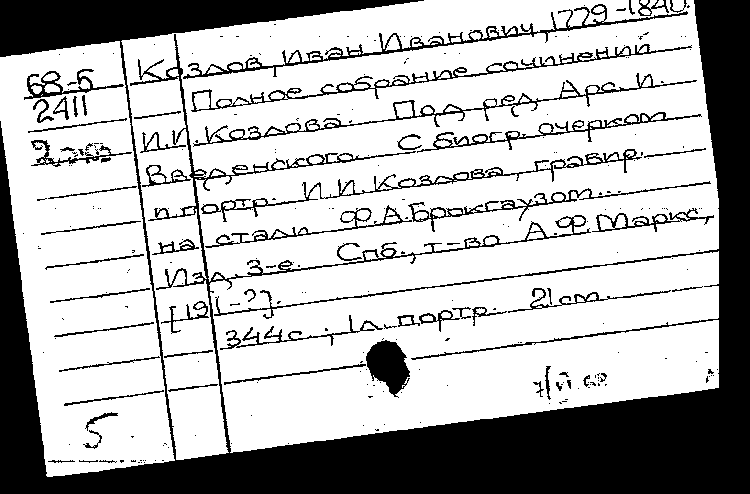 68-5
2411
Козлов, Иван Иванович, 1779-1840.
Полное собрание сочинений
И.И. Козлова. Под ред. Арс. И.
Введенского. С биогр. очерком
и портр. И.И. Козлова, гравир.
на стали Ф.А. Брокгаузом...
Изд. 3-е. Спб., т-во А.Ф. Маркс,
[191-?].
344с.; 1л. портр. 21 см.
7/VI 68
5